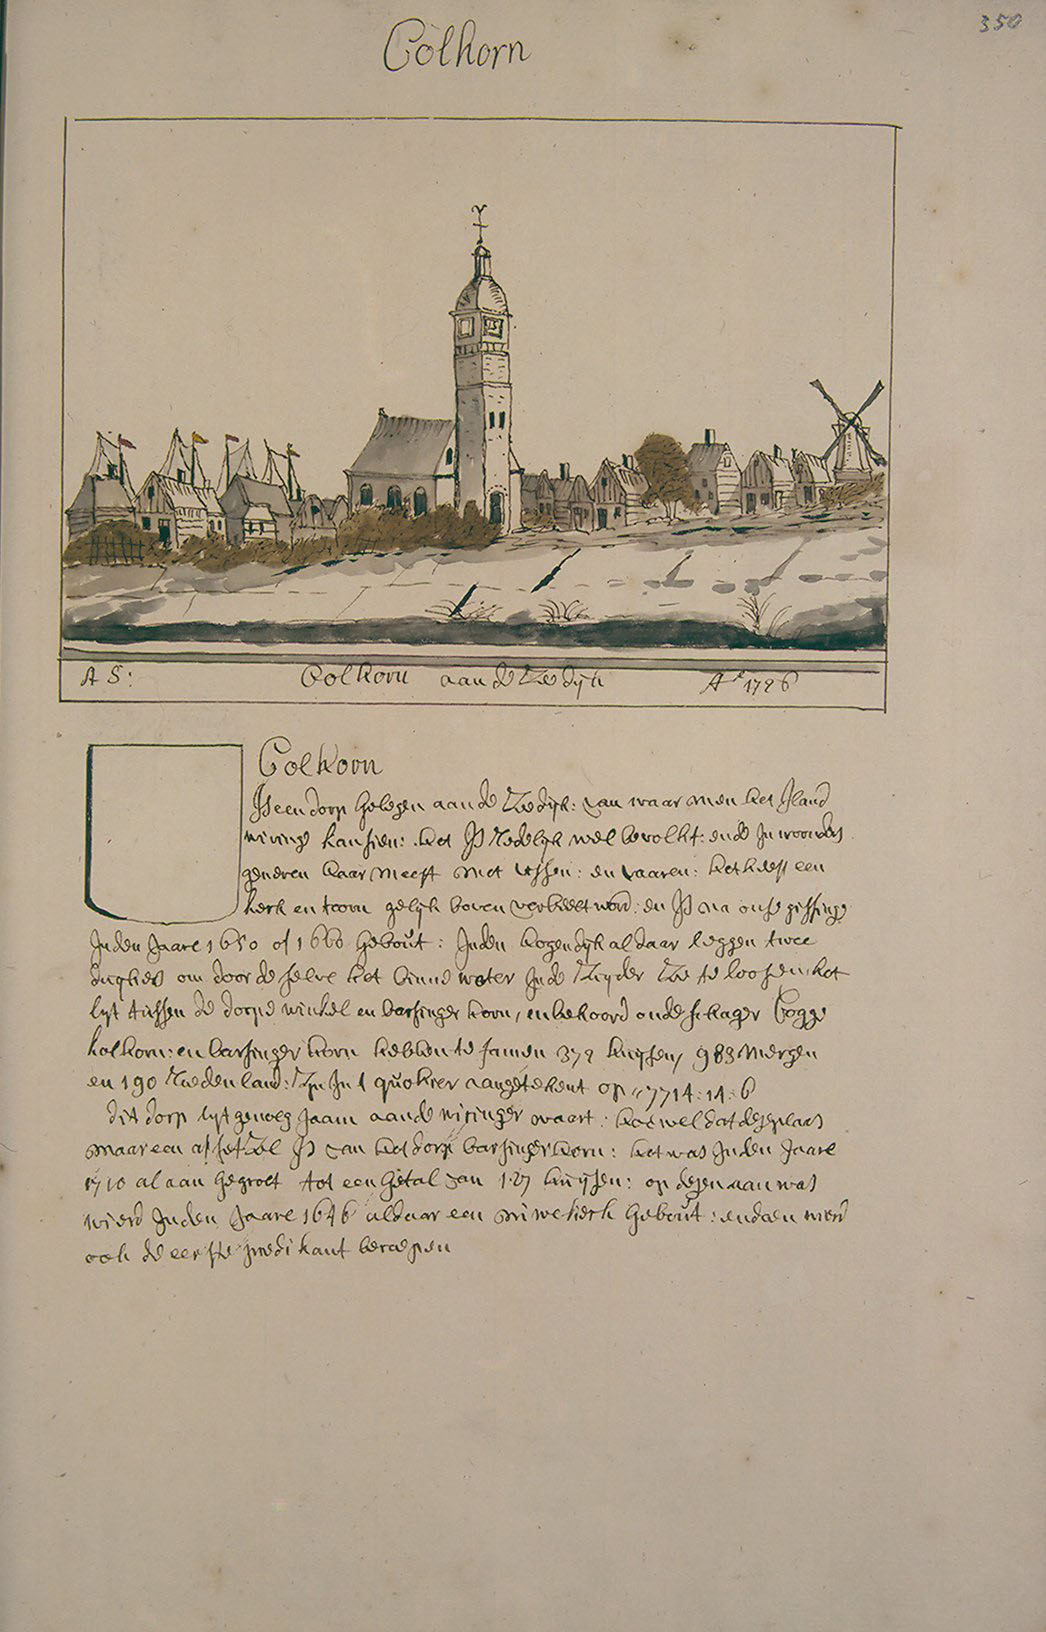 350
Colhorn
A S: Colkorn aan de Zee dijk Ao 1726
Colkoorn
Is een dorp Gelegen aan de Zeedijk: van waar men het Iland
wiring kan sien: het Is Redelijk wel bevolkt: en de Inwoonders
generen haar meest met vissen: en vaaren: het heeft een
kerk en toorn gelijk boven verbeelt word: en Is na onse gissing
Inden Jaare 1650 of 1660 Gebout: Inden hogendijk aldaar leggen twee
om door de selve het binne water In de Zuyder Zee te loosen: het
lijt tussen de dorpe winkel en barsinger korn, en behoord onder schager Cogge
kolkorn: en barsinger korn hebben te samen 372 huysen, 983 mergen
en 190 Roeden land: Zijn In t quohier aangetekent op 7714:14:6
Dit dorp lijt genoeg saam aande wiringer waart: hoe wel dat dese plaats
maar een afsetzel Is van het dorp barsingerkorn: het was Inden Jaare
1710 al aan Gegroet tot een Getal van 127 huijsen: op desen aanwas
wierd Inden Jaare 1646 aldaar een niwe kerk Gebout: en doen wierd
ook de eerste predikant beroepen